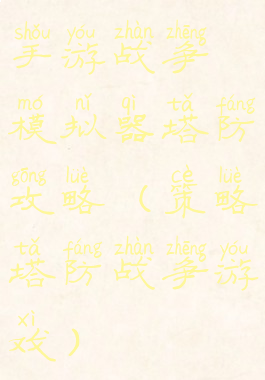 shǒu yóu zhàn zhēng
手游战争
mó nǐ qì tǎ fáng
模拟器塔防
gōng lüè cè lüè
攻略（策略
tǎ fáng zhàn zhēng yóu
塔防战争游
xì
戏）